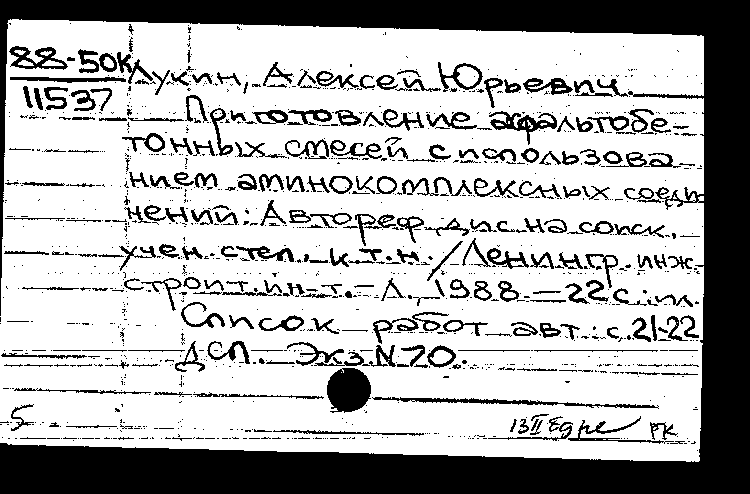 88-50к
11537
Лукин, Алексей Юрьевич.
Приготовление асфальтобе-
тонных смесей с использова
нием аминокомплексных соеди
нений: Автореф. дис. на соиск.
учен. степ. к.т.н. / Ленингр. инж.-
строит. ин-т. - Л., 1988. - 22 с.: ил.
Список работ авт.: с. 21-22
ДСП. Экз. N 70.
5
13 II РК